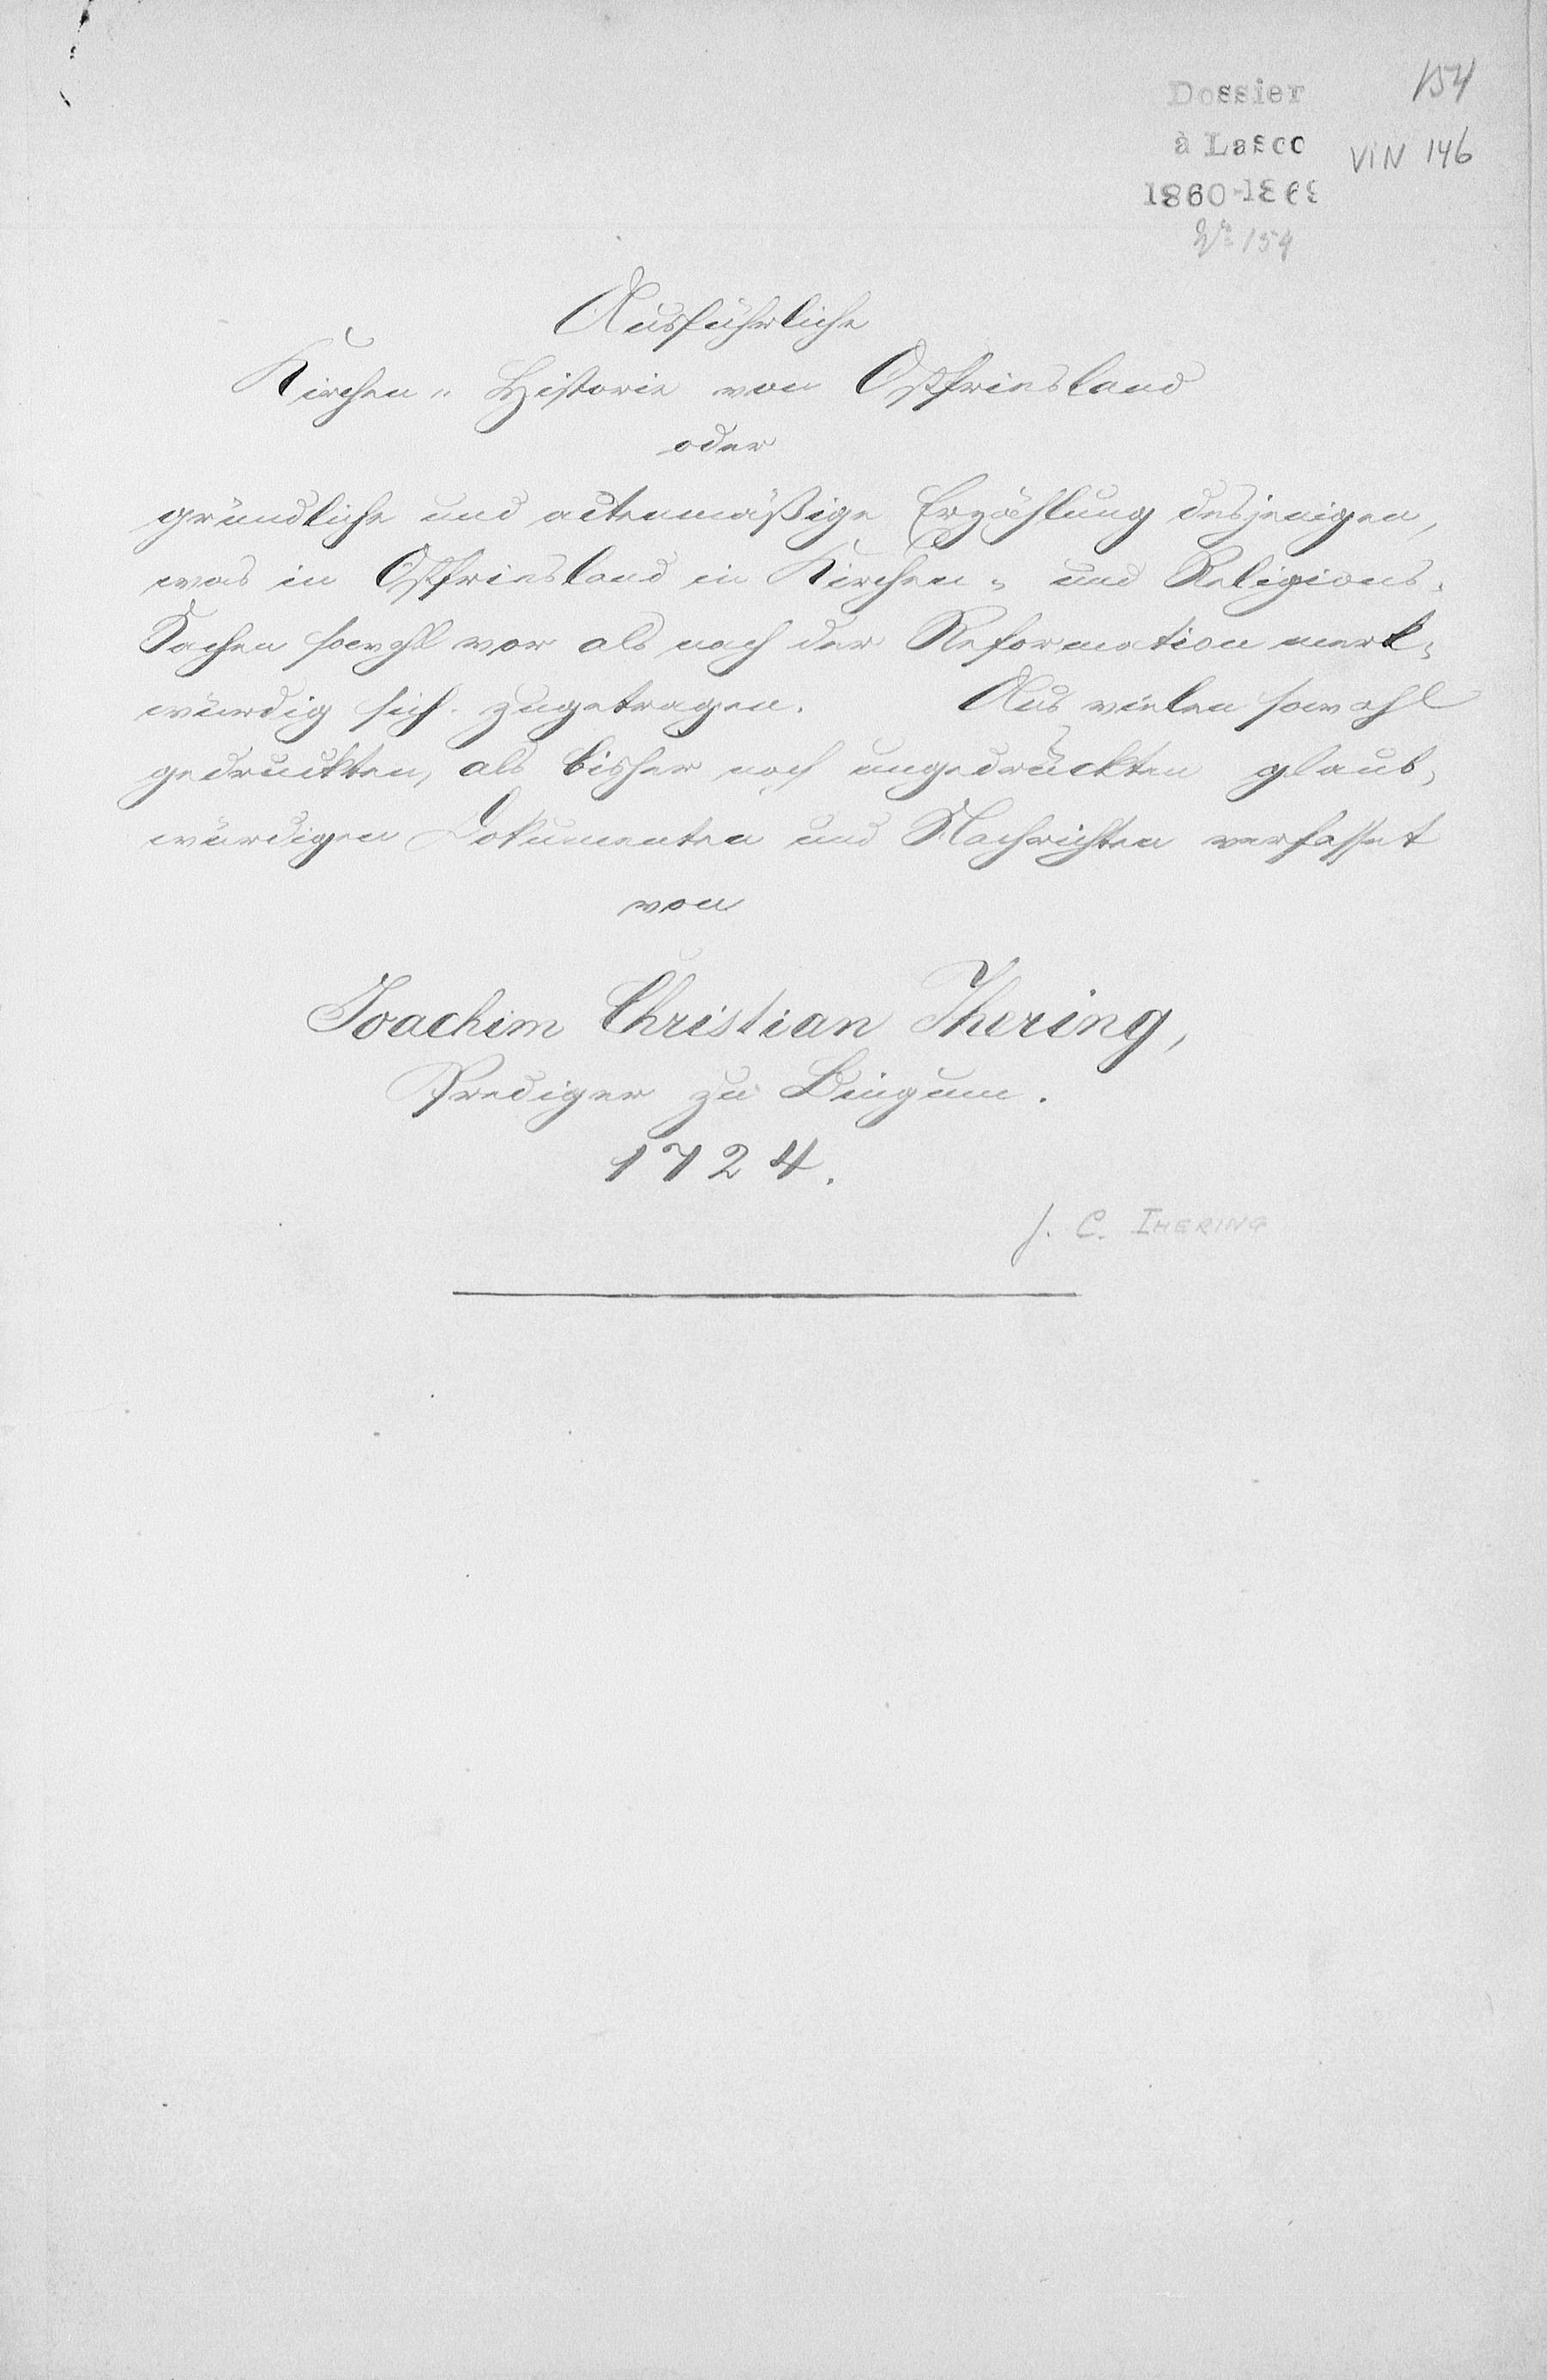 154
Dossier
à Lasco
1860-1869
VIN 146
No 154
Ausführliche
Kirchen- Historie von Ostfriesland
oder
gründliche und actenmäßige Erzählung desjenigen,
was in Ostfriesland in Kirchen- und Religions-
Sachen sowohl vor als nach der Reformation merk-
würdig sich zugetragen. Aus vielen sowohl
gedruckten, als bisher noch ungedruckten glaub-
würdigen Dokumenten und Nachrichten verfasset
von
Joachim Christian Ihering,
Prediger zu Bingum.
1724.
J. C. IHERING